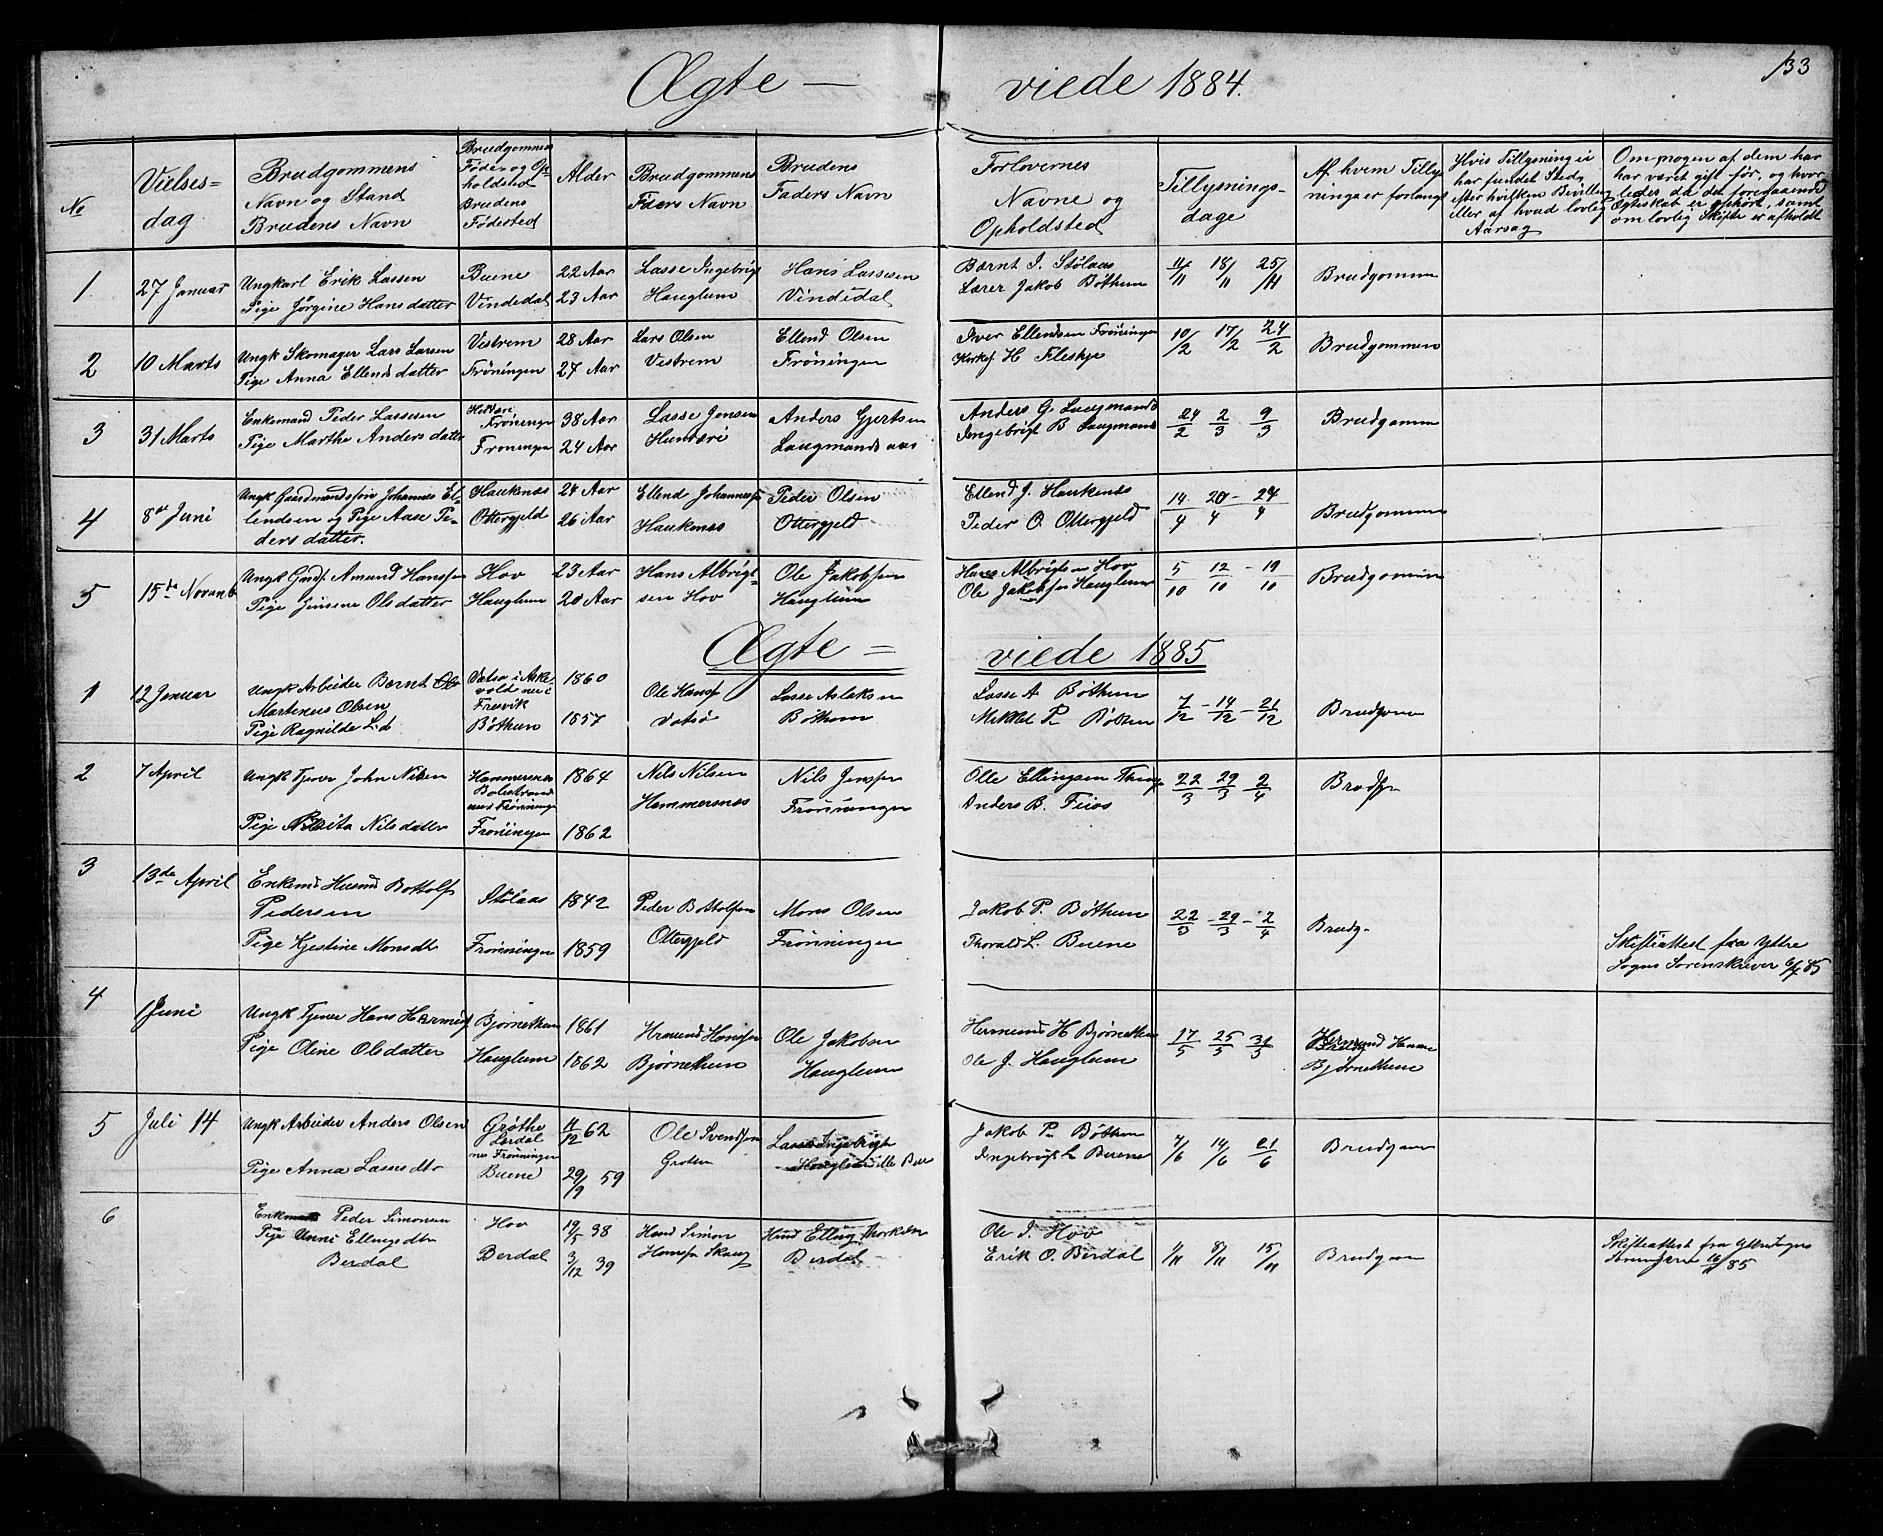 133
Ægte — viede 1884.
No
Vielses=
dag
Brudgommens
Navn og Stand
Brudens Navn
Brudgommens
Føde og Op
holdsted
Brudens
Fødested
Alder
Brudgommens
Faders Navn
Brudens
Faders Navn
Forlovernes
Navne og
Opholdsted
Tillysnings-
dage
Af hvem Tillys
ninga er forlangt
Hvis Tillysning ei
har fundet Sted,
efter hvilken Bevilling
eller af hvad lovlig
Aarsag
Om nogen af dem har
har været gift før, og hvor
ledes da det foregaaende
Ægteskab er ophørt, samt
om lovlig Skifte er afholdt
1.
27 Januar
Ungkarl Erik Lassen
Pige Jørgine Hansdatter
Buene
Vindedal
22 Aar
23 Aar
Lasse Ingebrigt
Hauglum
Hans Lassesen
Vindedal
Bærnt J. Stølaas
Lærer Jakob Bøthun
11/11 18/11 25/11
Brudgommen
2
10 Marts
Ungk Skomager Lars Larsen
Pige Anna Ellendsdatter
Vestrem
Frøningen
28 Aar
27 Aar
Lars Olsen
Vestrem
Ellend Olsen
Frøningen
Iver Ellendsen Frøningen
H Fleskje
10/2 17/2 24/2
Brudgommen
3
31 Marts
Enkemand Peder Lassesen
Pige Marthe Andersdatter
Frøningen
Frøningen
38 Aar
24 Aar
Lasse Jensen
Anders Gjertsen
Laugmandsaas
Anders G. Laugmands
Ingebrigt B Laugmands
24/2 2/3 9/3
Brudgommen
4
8de Juni
Ungk Gaardmandssøn Johannes El-
lendsen og Pige Aase Pe-
dersdatter.
Haukenæs
Ottergjeld
24 Aar
26 Aar
Ellend Johannessen
Haukenæs
Peder Olsen
Ottergjeld
Ellend J. Haukenæs
Peder O. Ottergjeld
14/4 20/4 - 27/4
Brudgommen
5
15de Novemb
Ungk Gaardf. Amund Hanssen
Pige Jensene Olsdatter
Hov
Hauglum
23 Aar
20 Aar
Hans Albrigt-
sen Hov
Ole Jakobsen
Hauglum
Hans Albrigtsen Hov
Ole Jakobsen Hauglum
5/10 12/10 - 19/10
Brudgommen
Ægte = viede 1885
1
12 Januar
Ungk Arbeider Bærnt
Martinus Olsen
Pige Ragnilde L.d
Vatsø i Aske-
vold nu i
Fresvik
Bøthun
1860
1857
Ole Hansen
Vatsø
Lasse Aslaksen
Bøthun
Lasse A Bøthun
Mikkel P. Bøthun
7/12 - 14/12 - 21/12
Brudgommen
2
7 April
Ungk Tjener John Nilsen
Pige Nilsdatter
Hammersnes
Balestrand
nu i Frøningen
Frøningen
1864
1862
Nils Nilsen
Hammersnæs
Nils Jensen
Frønningen
Olle Ellingsen
Anders B. Feios
22/3 29/3 2/4
Brudg
3
13de April
Enkemd Husmd Bottolf
Pedersen
Pige Kjestine Monsdt
Stølaas
Frønningen
1842
1859
Peder Bottolfsen
Ottergjeld
Mons Olsen
Frønningen
Jakob P. Bøthun
Thorald L. Buene
22/3 - 29/3 - 2/4
Brudg.
Skifteattest fra Yttre
Sogns Sorenskriver 6/4 85
4
1 Juni
Ungk Tjener Hans Hermds
Pige Oline Olsdatter
Bjørnethun
Hauglum
1861
1862
Hermund Hanssen
Bjørnethun
Ole Jakobsen
Hauglum
Hermund H Bjørnethun
Ole J. Hauglum
17/5 25/5 31/5
Hermund Hansen
Bjørnethun
5
Juli 14
Ungk Arbeider Anders Olsen
Pige Anna Lassesdtr
Grøthe
Lærdal
nu Frønningen
Buene
11/12 62
29/9 59
Ole Svendsen
Grøten
Lasse Ingebrigt
Jakob P. Bøthun
Ingebrigt L Buene
7/6 14/6 21/6
Brudgom
6
Enkemand Peder Simonsen
Pige Unni Ellingsdtr
Berdal
Hov
Berdal
19/5 38
3/12 39
Husmd Simon
Hansen Skaug
Husmd Elling Thorkelsen
Berdal
Ole J. Hov
Erik O. Berdal
1/11 8/11 15/11
Brudgom
Skifteattest fra Ytresogns
85